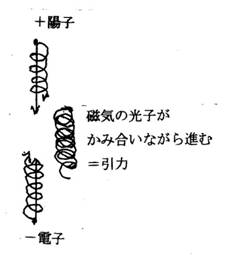 ＋陽子
磁気の光子が
かみ合いながら進む
＝引力
－電子